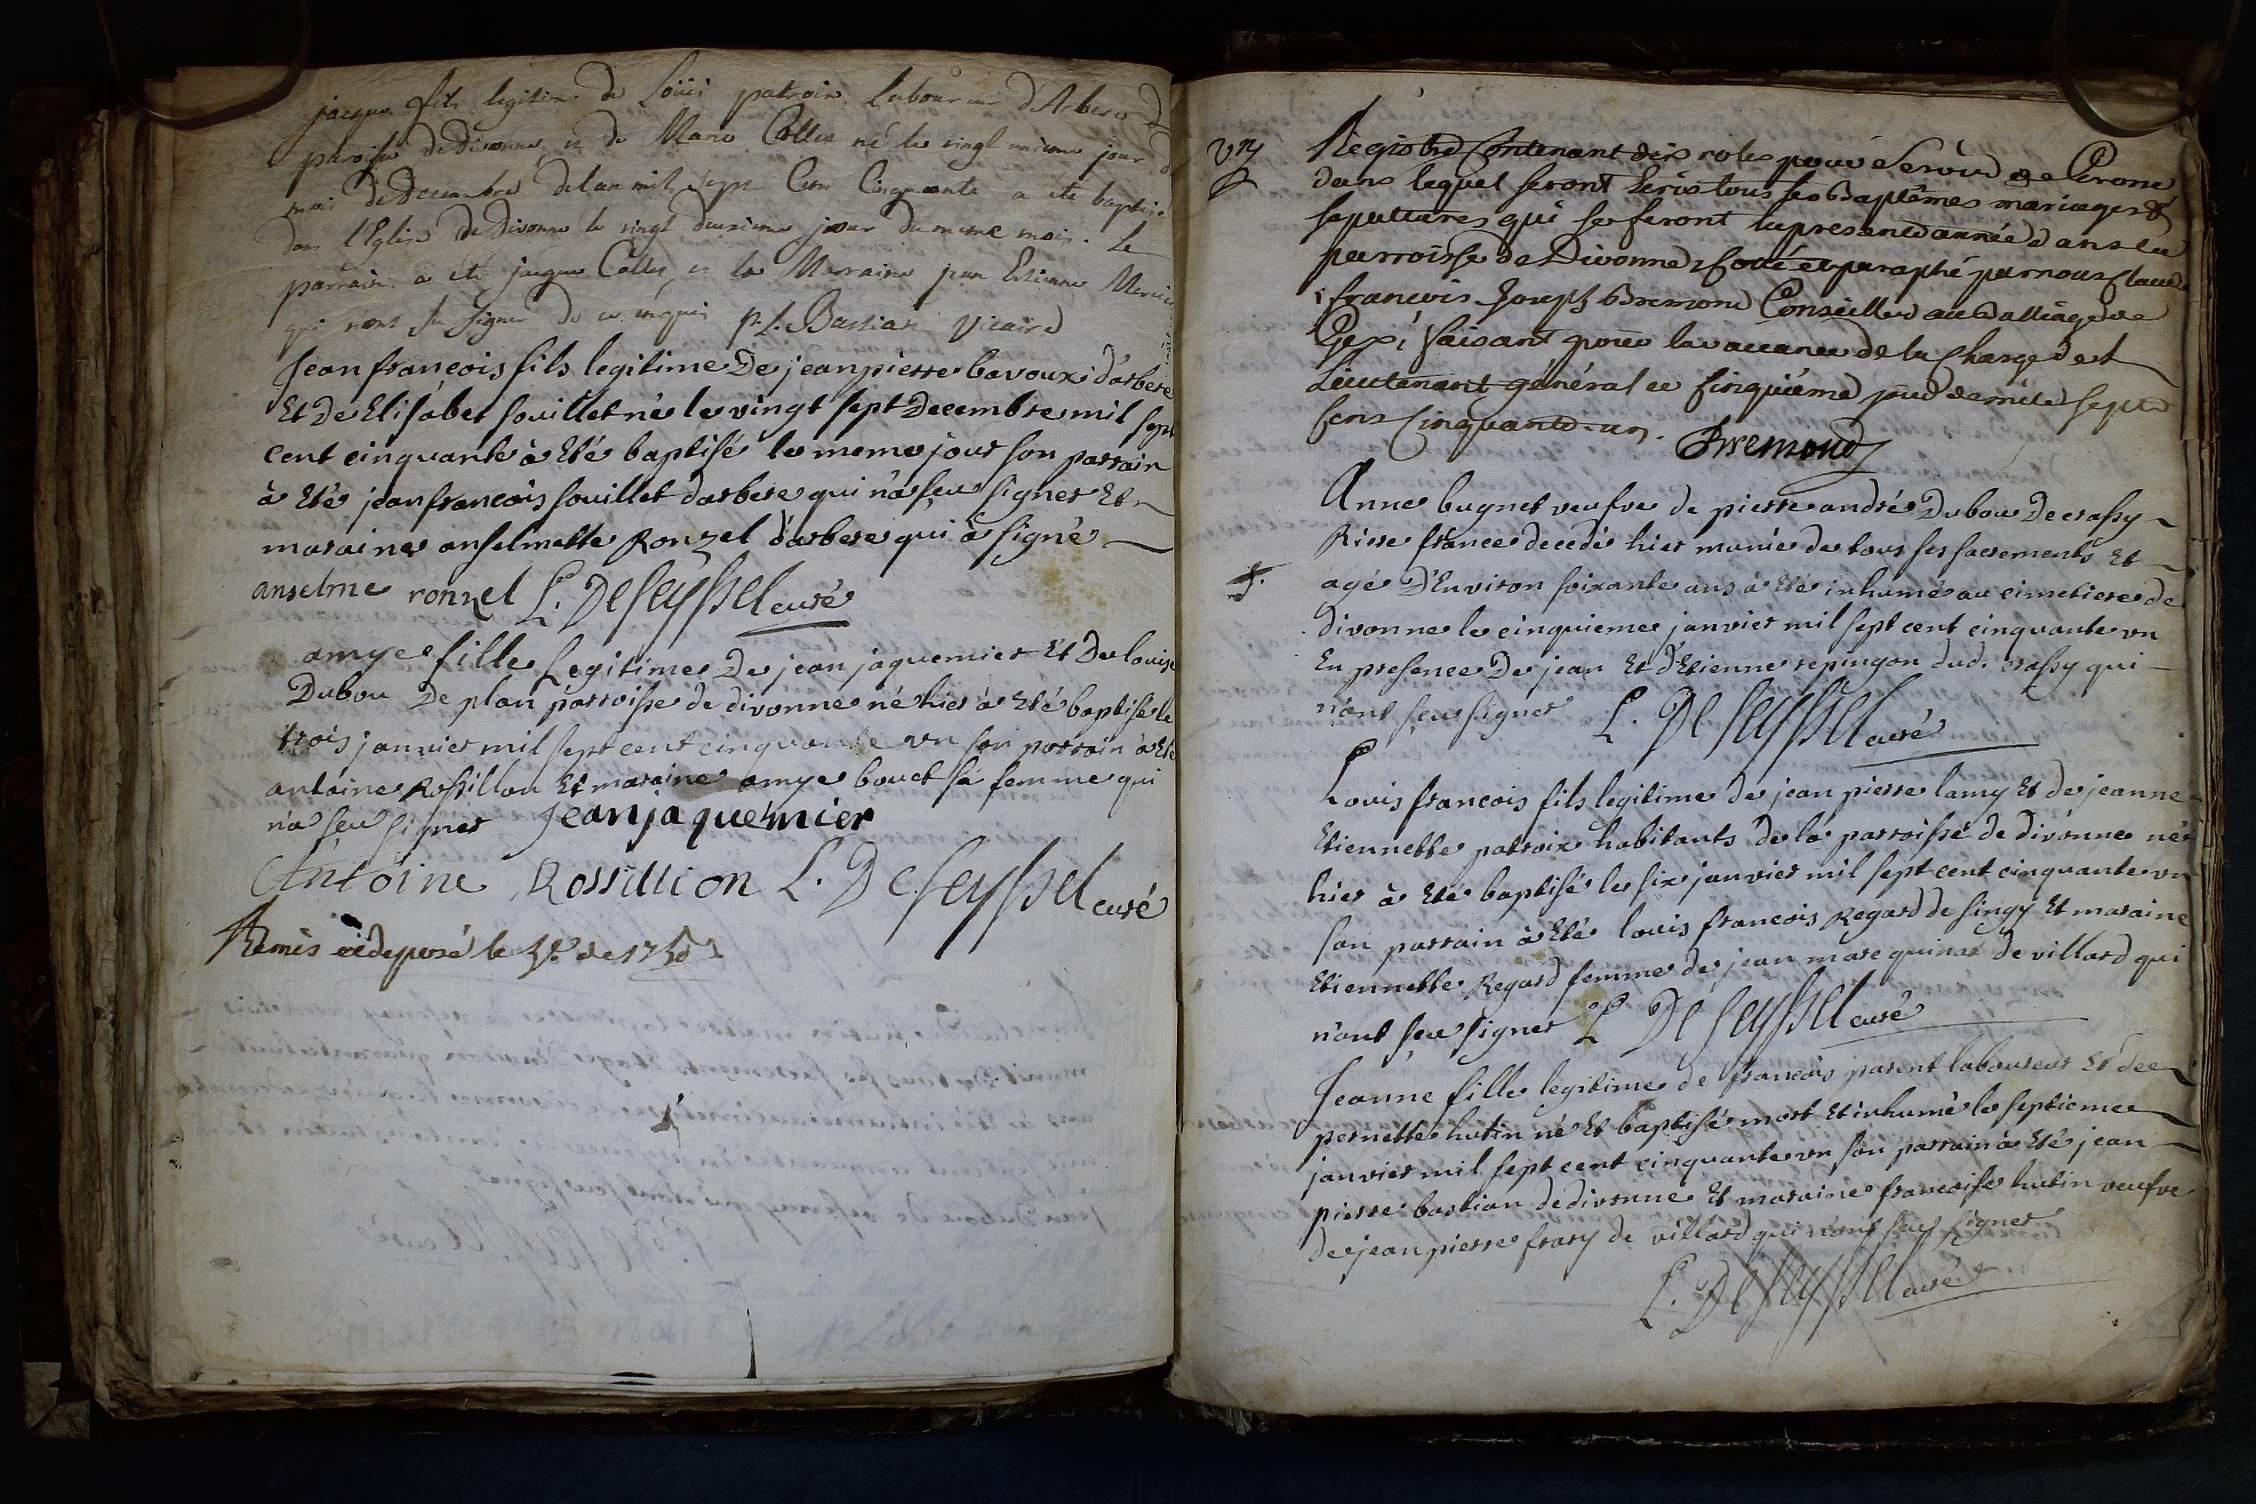 jacque fils legitime de Loüis patroin laboureur d'Arbere
paroisse de Divonne et de Marie Collet né le vingt unieme jour d
mois de Decembre de l'an mil sept Cent Cinquante a été baptisé
dans l'Eglise de Divonne le vingt deuxieme jour du meme mois. Le
parrain a été jacque Collet et la Marraine
qui n'ont su signer de ce enquis p. L. Bastian vicaire
Jean francois fils legitime De jean pierre bavoux d'arbere
Et De Elisabet souillet né le vingt sept Decembre mil sept
cent cinquante à Eté baptisé le meme jour son parrain
à Eté jean francois souillet d'arbere qui n'a seu signer Et
maraine anselmette Ronzel d'arbere qui à signé
anselme ronzel L. De Seyssel curé
amye fille Legitime De jean jaquemier Et De louise
Dubou De plan parroisse de divonne né hier à Eté baptisé le
trois janvier mil sept cent cinquante un son parrain à Eté
antoine Rossillon Et maraine amye bouet sa femme qui
n'a seu signer Jean jaquemier
Antoine Rossillion L. De Seyssel curé
Remis et deposé le
vn
Registre Contenant dix roles pour Servir de
dans lequel seront Ecris tous les Baptêmes mariages &
sepultures qui se feront la presente année dans la
parroisse de Divonne Cotté et paraphé par nous Claude
francois Joseph Bremond Conseiller au Balliage de
Gex, faisant pour la vaccance de la Charge de
Lieutenant général ce cinquiéme jour de mille sept
cens Cinquante un. Bremond
Anne bugnet veufve de pierre andré Dubou De crassy
Riere france decedé hier munie de tous ses sacrements Et
agé D'Environ soixante ans à Eté inhumé au cimetiere de
divonne le cinquieme janvier mil sept cent cinquante un
En presence De jean Et d'Etienne repingon dud. crassy qui
n'ont seu signer L. De Seyssel curé
Louis francois fils legitime de jean pierre lamy Et de jeanne
Etiennette patroix habitants de la parroisse de divonne né
hier à Eté baptisé le six janvier mil sept cent cinquante un
son parrain à Eté louis francois Regard de singy Et maraine
Etiennette Regard femme de jean marc quinat de villard qui
n'ont seu signer L. De Seyssel curé
Jeanne fille legitime de francois parent laboureur Et de
pernette hutin né Et baptisé mort Et inhumé le septieme
janvier mil sept cent cinquante un son parrain à Eté jean
pierre bastian de divonne Et maraine francoise hutin veufve
de jean pierre frary de villard qui n'ont seu signer
L. De Seyssel curé